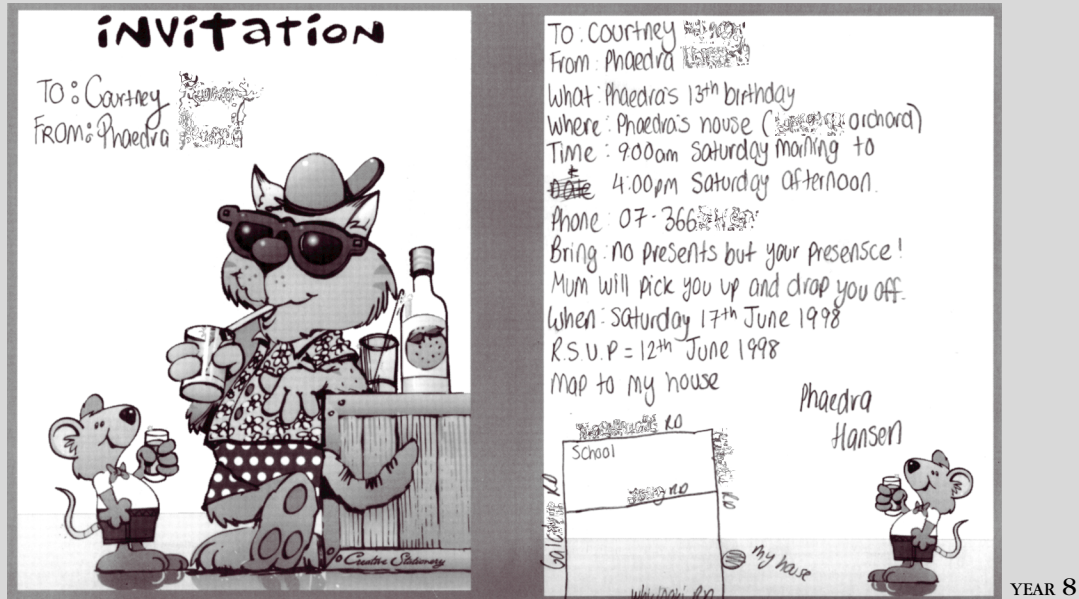 INVITATION
TO: Courtney
FROM: Phaedra
Creative Stationery
To: Courtney
From: Phaedra
What: Phaedra's 13th birthday
Where: Phaedra's house ( orchard)
Time: 9:00am Saturday morning to
4:00pm Saturday afternoon.
Phone: 07-366
Bring: no presents but your presensce!
Mum will pick you up and drop you off.
When: Saturday 17th June 1998
R.S.V.P = 12th June 1998
Map to my house
Phaedra
Hansen
RD
School
RD
RD
RD
my house
RD
YEAR 8